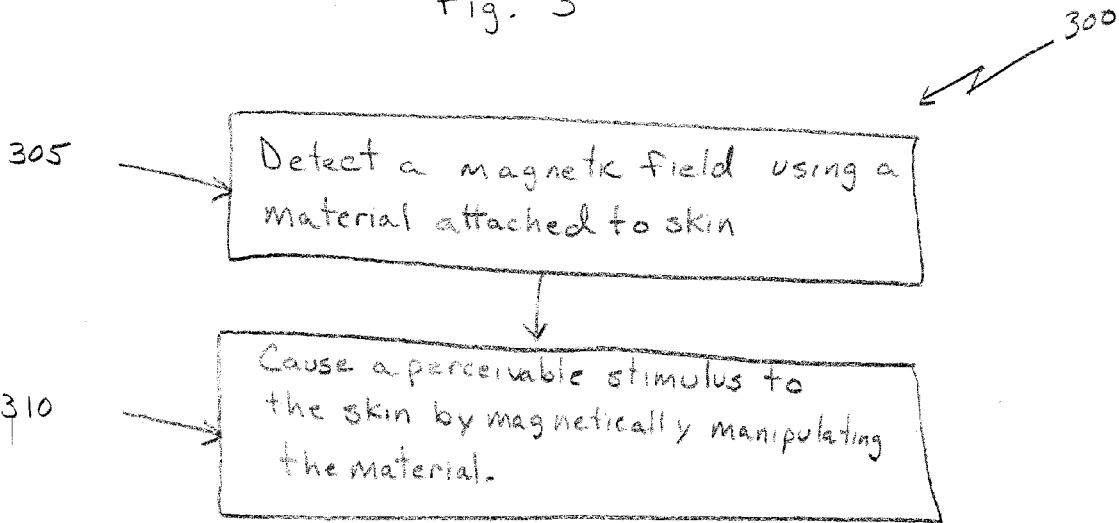 Fig. 3
300
305
Detect a magnetic field using a
material attached to skin
310
Cause a perceivable stimulus to
the skin by magnetically manipulating
the material.